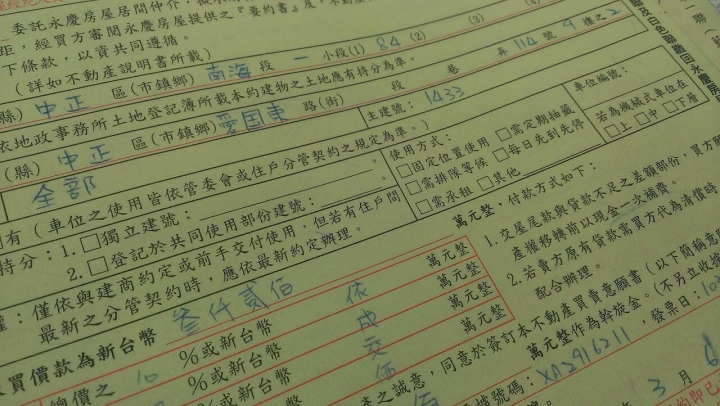 委託永慶房屋居間仲介，
距，經買方審閱永慶房屋提供之『要約書』及
下條款，以資共同遵循。
(詳如不動產說明書所載)
縣) 中正 區(市鎮鄉) 南海 段 一 小段(1) 84 (2) (3) (4)
依地政事務所土地登記簿所載本約建物之土地應有持分為準。
(縣) 中正 區(市鎮鄉) 愛国東 路(街) 段 巷 弄 114 號 9 樓之2
全部 主建號： 1433
有(車位之使用皆依管委會或住戶分管契約之規定為準。)
使用方式： □需定期抽籤 車位編號：
□固定位置使用 □每日先到先停 若為機械式車位在
□需排隊等候 □上 □中 □下層
□需承租 □其他
持分：1.□獨立建號：
2.□登記於共同使用部份建號：
：僅依與建商約定或前手交付使用，但若有住戶間
最新之分管契約時，應依最新約定辦理。
萬元整，付款方式如下：
1.交屋尾款與貸款不足之差額部份，買方
產權移轉前以現金一次補齊。
2.若賣方原有貸款需買方代為清償時
配合辦理。
買價款為新台幣 叁仟貳佰 萬元整
總價之 10 %或新台幣 依 萬元整
%或新台幣 成 萬元整
%或新台幣 交 萬元整
之誠意，同意於簽訂本不動產買賣意願書(以下簡稱意願
萬元整作為斡旋金。(不另立收據
據號碼： XA2916211 ，發票日：
3 月